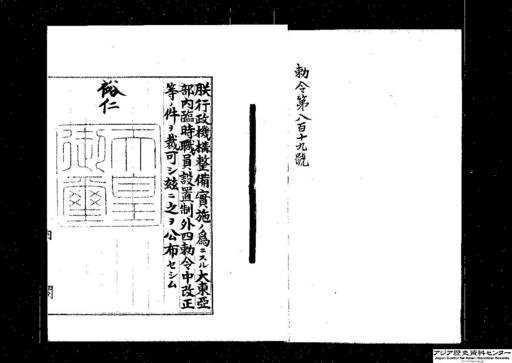 勅令第八百十九號
朕行政機構整備實施ノ爲ニスル大東亞
部內臨時職員設置制外四勅令中改正
等ノ件ヲ裁可シ玆ニ之ヲ公布セシム
裕仁
天皇
御璽
內閣
アジア歴史資料センター
Japan Center for Asian Historical Records